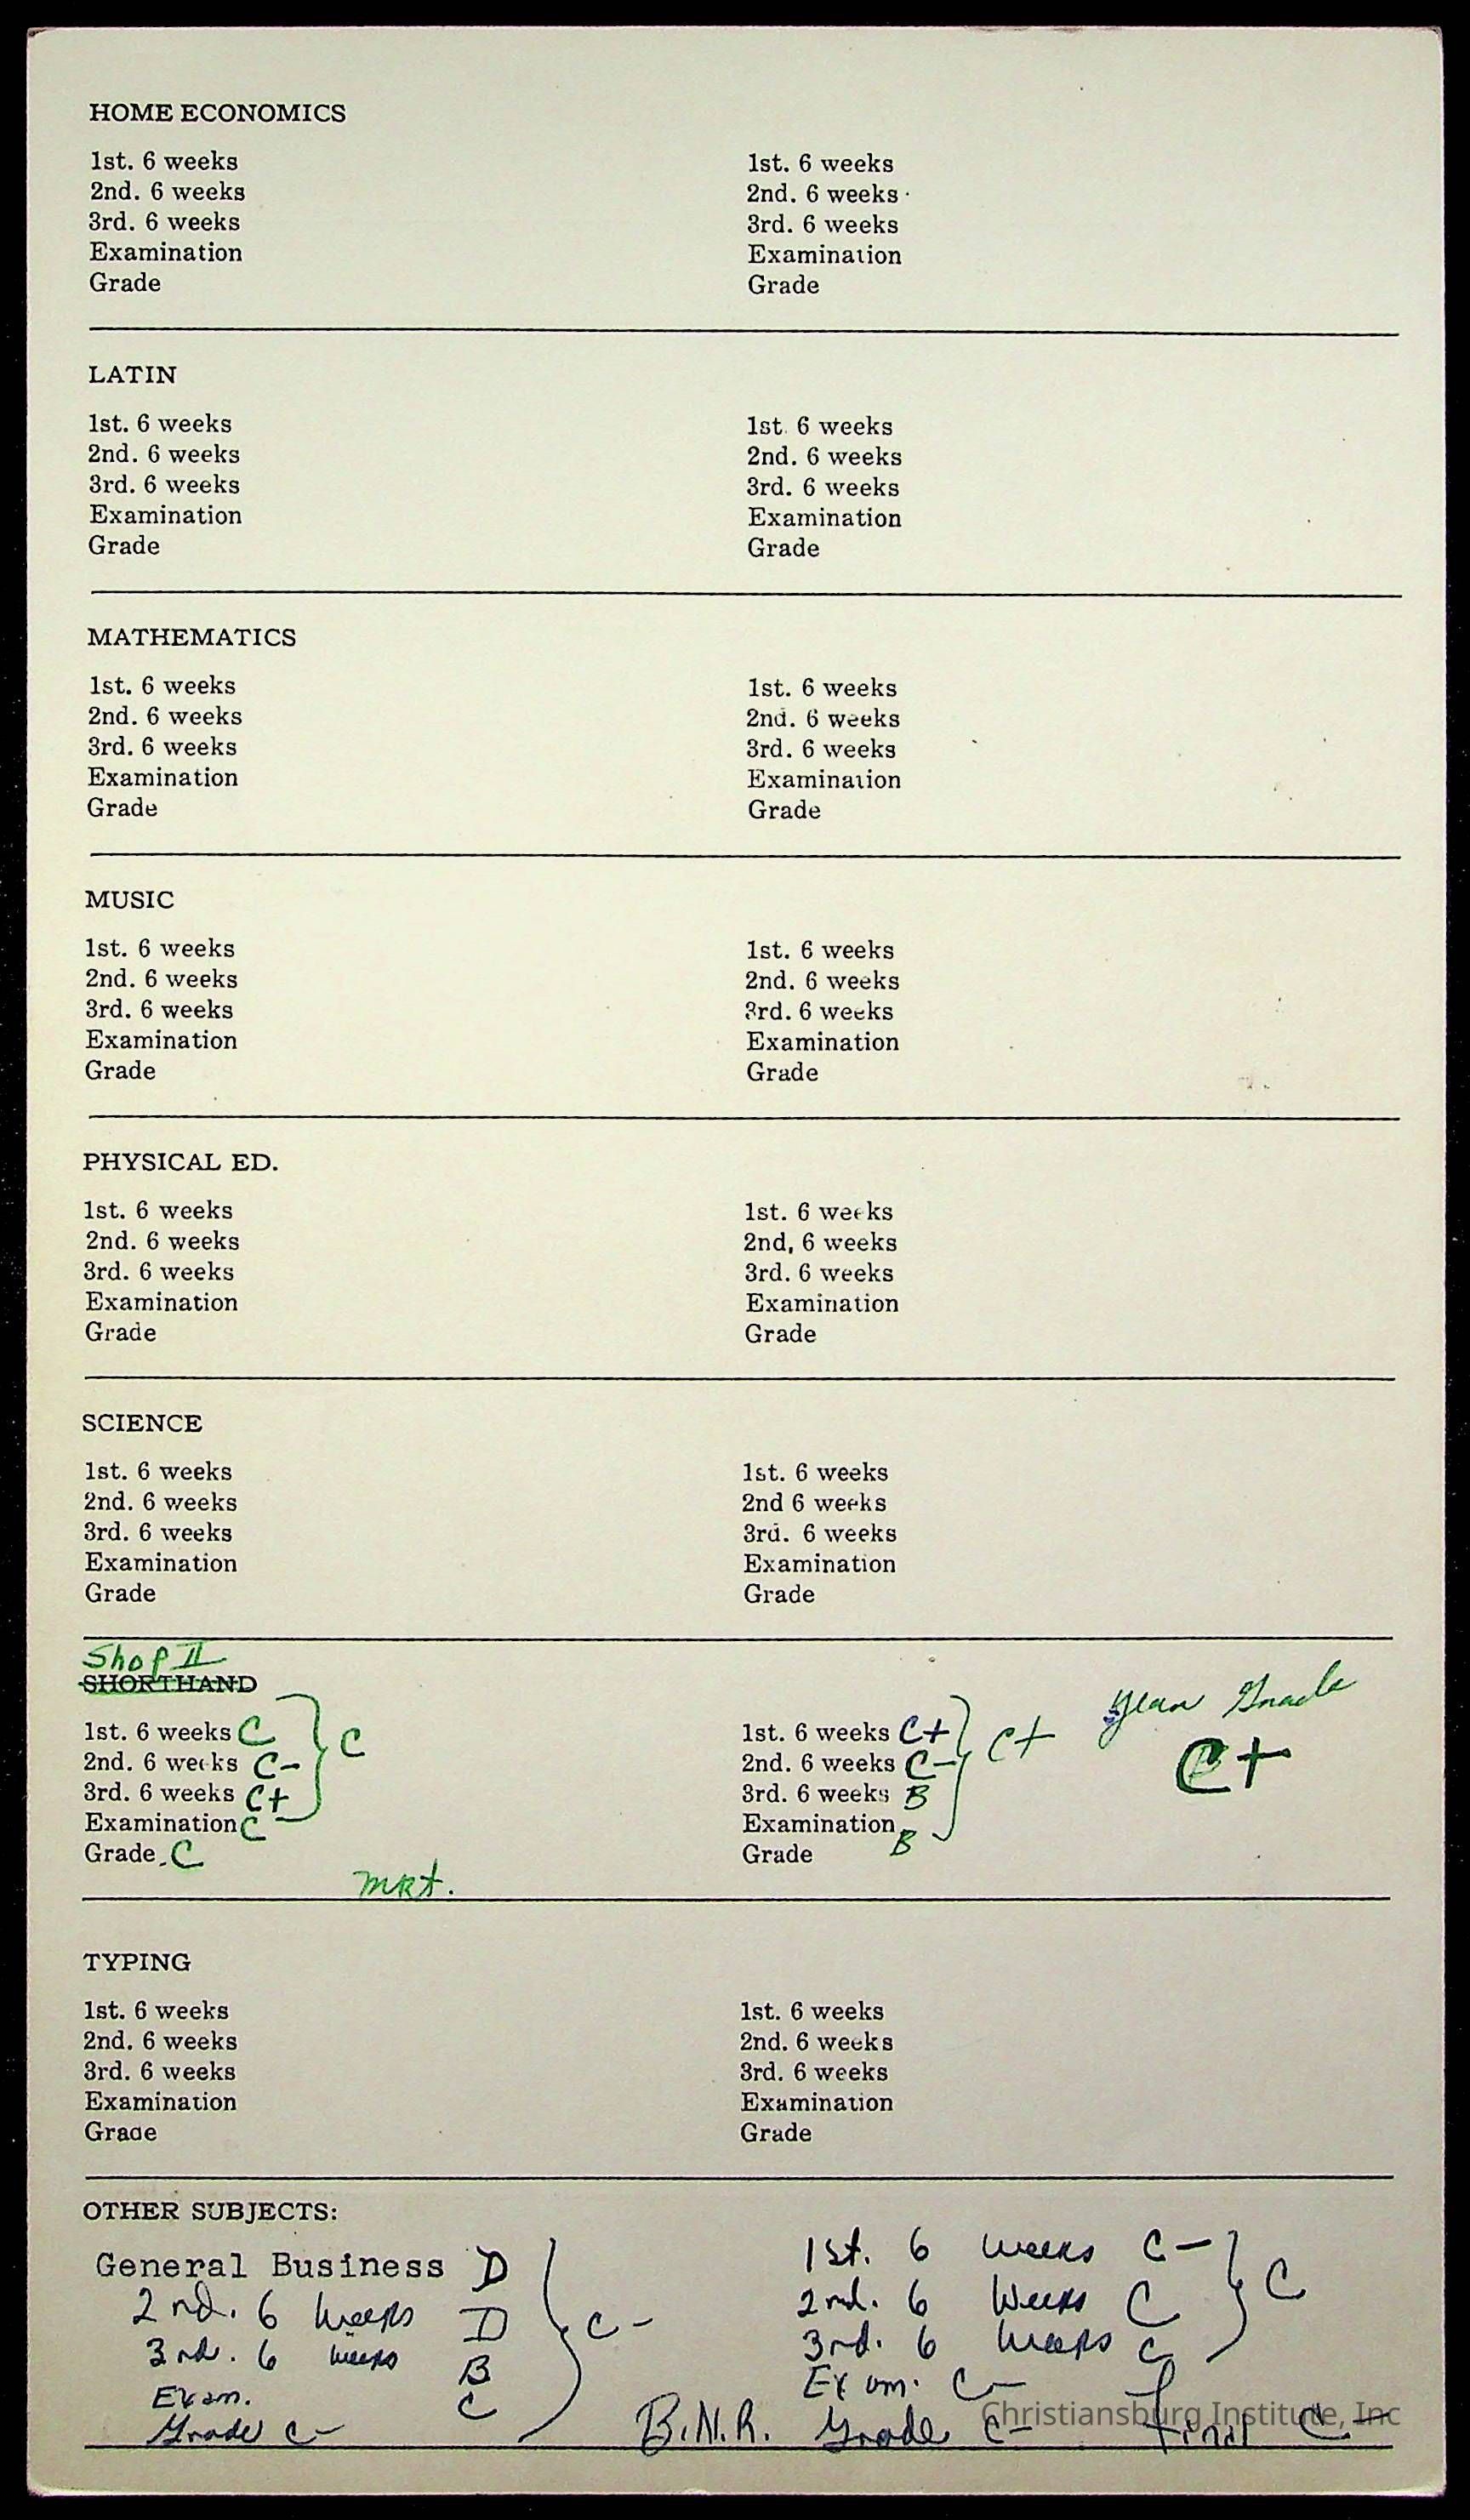 HOME ECONOMICS
1st. 6 weeks 1st. 6 weeks
2nd. 6 weeks 2nd. 6 weeks
3rd. 6 weeks 3rd. 6 weeks
Examination Examination
Grade Grade
LATIN
1st. 6 weeks 1st. 6 weeks
2nd. 6 weeks 2nd. 6 weeks
3rd. 6 weeks 3rd. 6 weeks
Examination Examination
Grade Grade
MATHEMATICS
1st. 6 weeks 1st. 6 weeks
2nd. 6 weeks 2nd. 6 weeks
3rd. 6 weeks 3rd. 6 weeks
Examination Examination
Grade Grade
MUSIC
1st. 6 weeks 1st. 6 weeks
2nd. 6 weeks 2nd. 6 weeks
3rd. 6 weeks 3rd. 6 weeks
Examination Examination
Grade Grade
PHYSICAL ED.
1st. 6 weeks 1st. 6 weeks
2nd. 6 weeks 2nd, 6 weeks
3rd. 6 weeks 3rd. 6 weeks
Examination Examination
Grade Grade
SCIENCE
1st. 6 weeks 1st. 6 weeks
2nd. 6 weeks 2nd 6 weeks
3rd. 6 weeks 3rd. 6 weeks
Examination Examination
Grade Grade
Shop II
SHORTHAND Year Grade
1st. 6 weeks C C 1st. 6 weeks C+ C+ C+
2nd. 6 weeks C- 2nd. 6 weeks C-
3rd. 6 weeks C+ 3rd. 6 weeks B
Examination C Examination B
Grade C Grade
mkt.
TYPING
1st. 6 weeks 1st. 6 weeks
2nd. 6 weeks 2nd. 6 weeks
3rd. 6 weeks 3rd. 6 weeks
Examination Examination
Grade Grade
OTHER SUBJECTS:
General Business D 1st. 6 weeks C- C
2nd. 6 weeks D C- 2nd. 6 Weeks C
3rd. 6 weeks B 3rd. 6 weeks C
Exam. C Exam. C-
Grade C- B.N.R. Grade C- Final C-
Christiansburg Institute, Inc